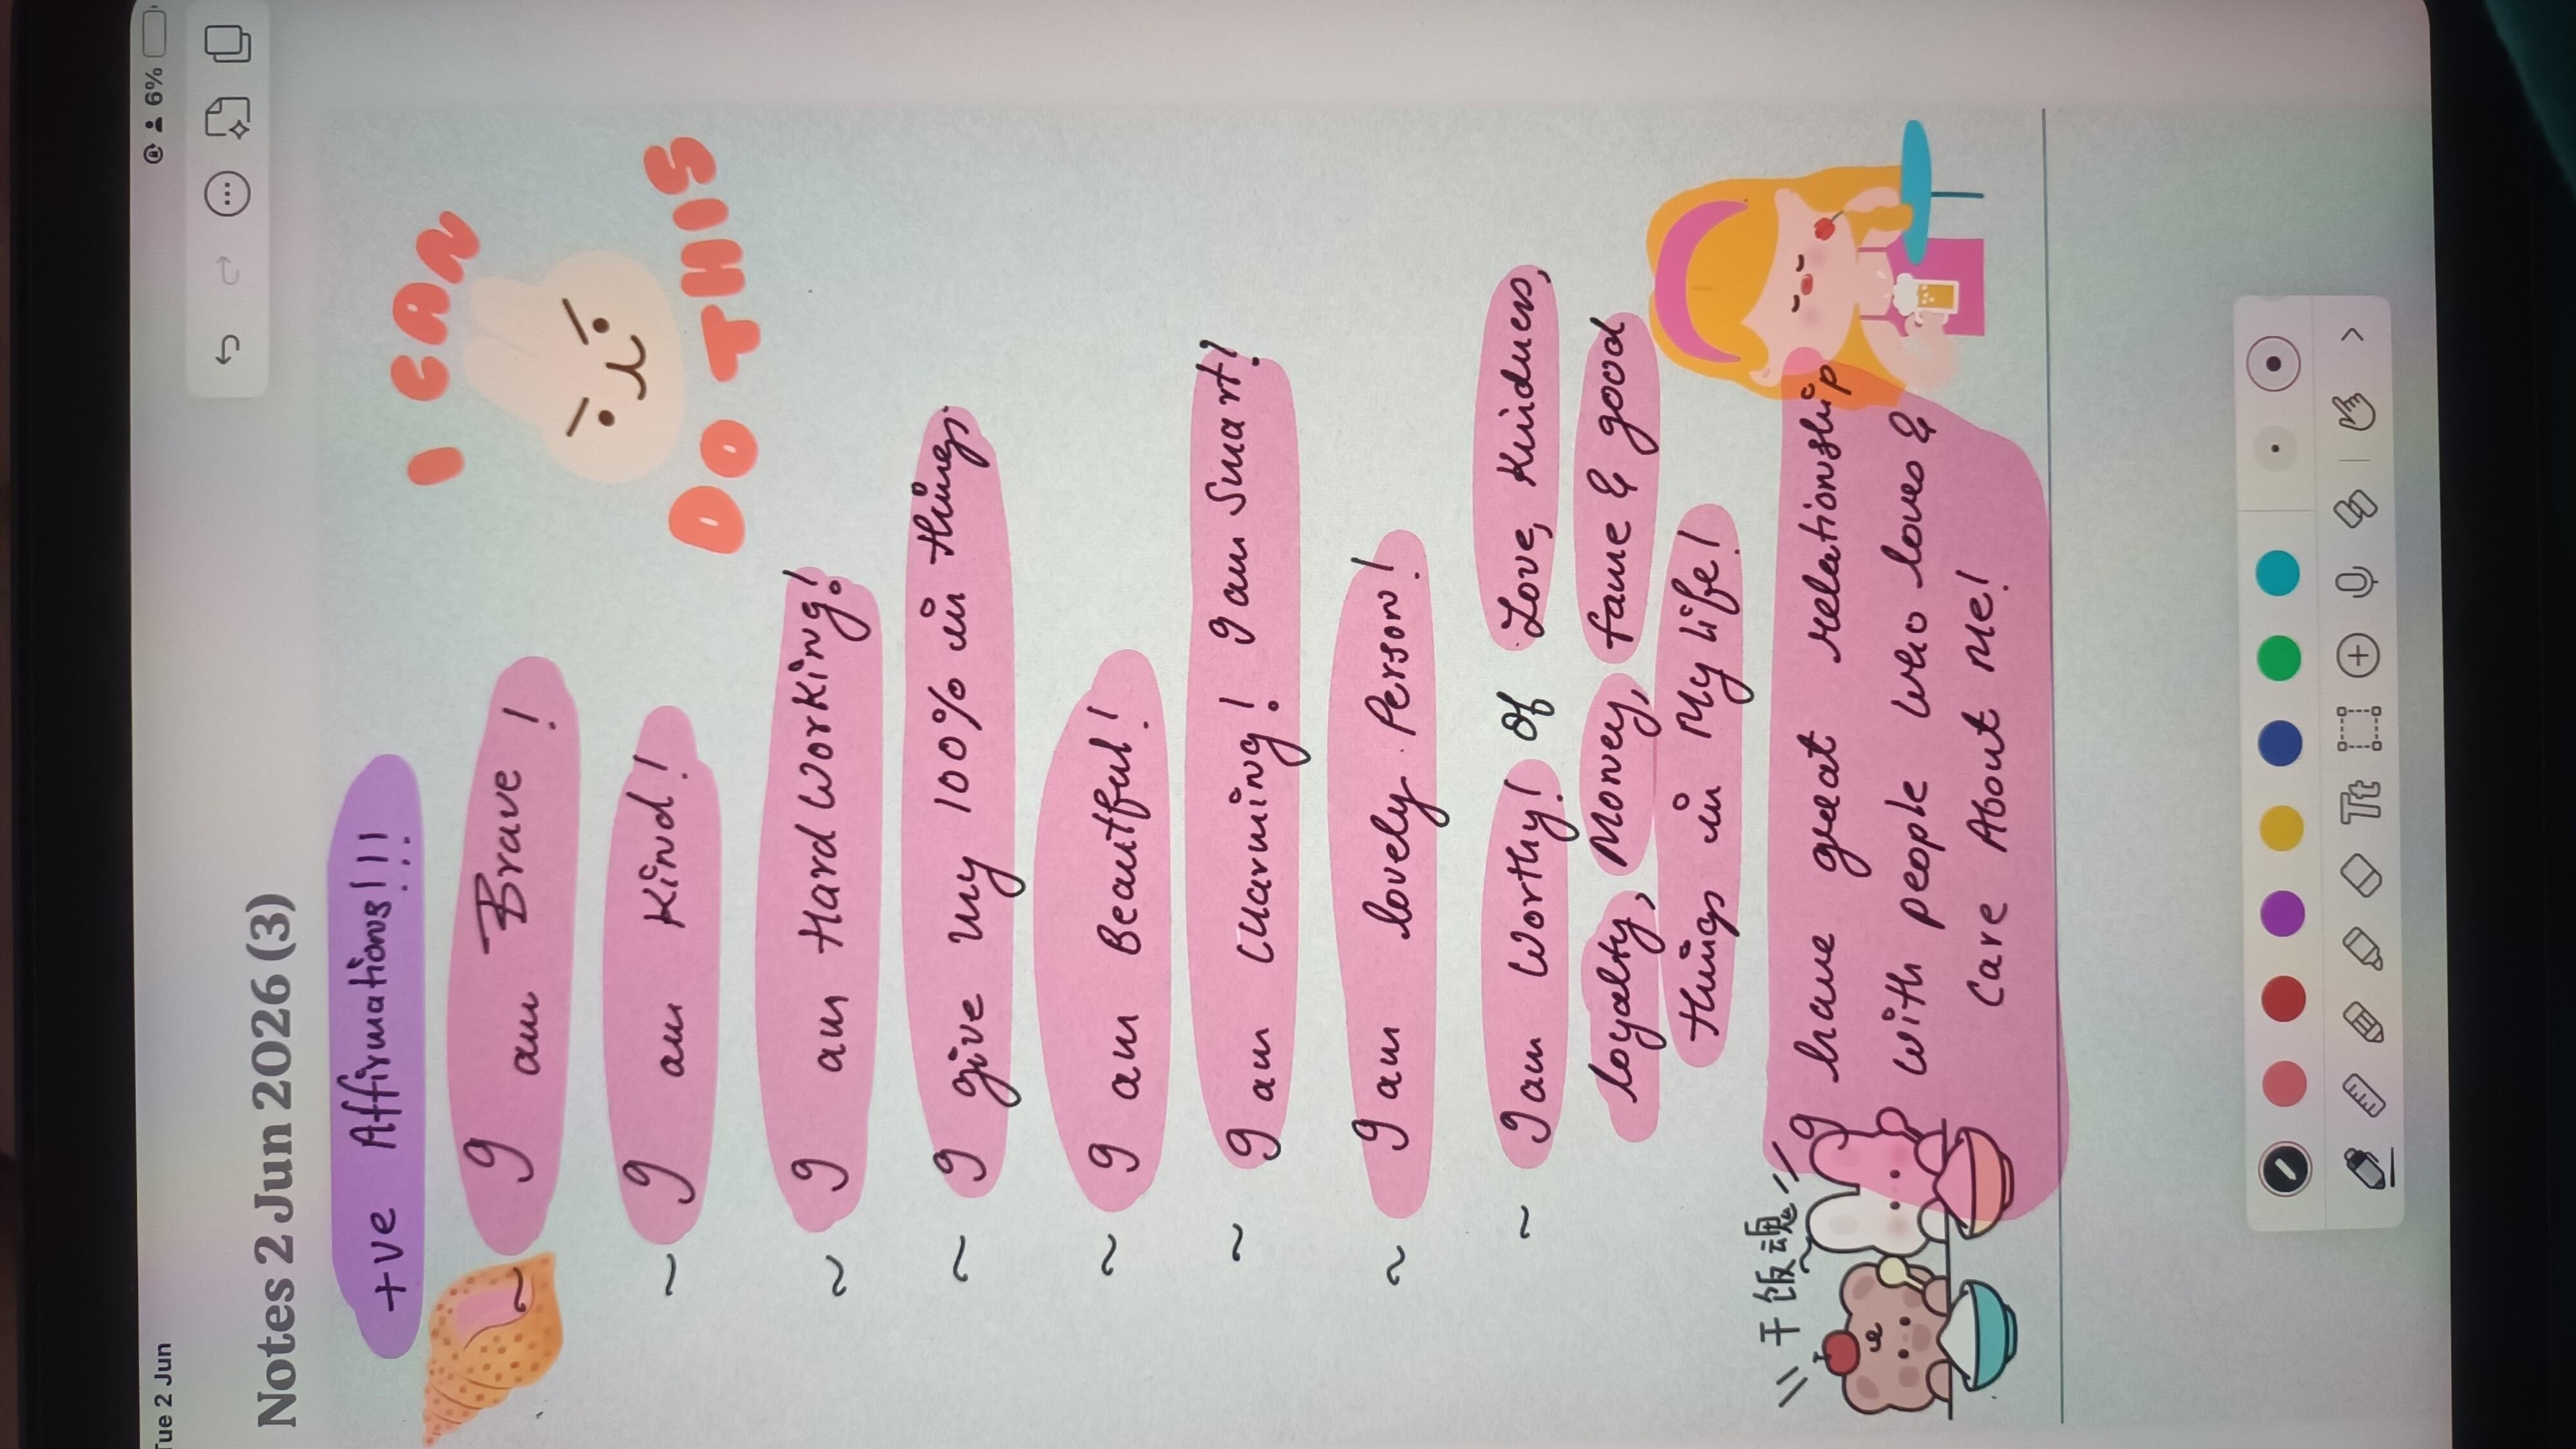 Tue 2 Jun
6%
Notes 2 Jun 2026 (3)
+ve Affirmations!!!
I CAN
DO THIS
~ I am Brave!
~ I am Kind!
~ I am Hard Working!
~ I give my 100% in things.
~ I am Beautful!
~ I am Charming! I am Smart!
~ I am lovely Person!
~ I am Worthy! of Love, Kindness,
loyalty, Money, fame & good
things in My life!
干饭魂
I have great relationship
with people who loves &
Care About Me!
Tt